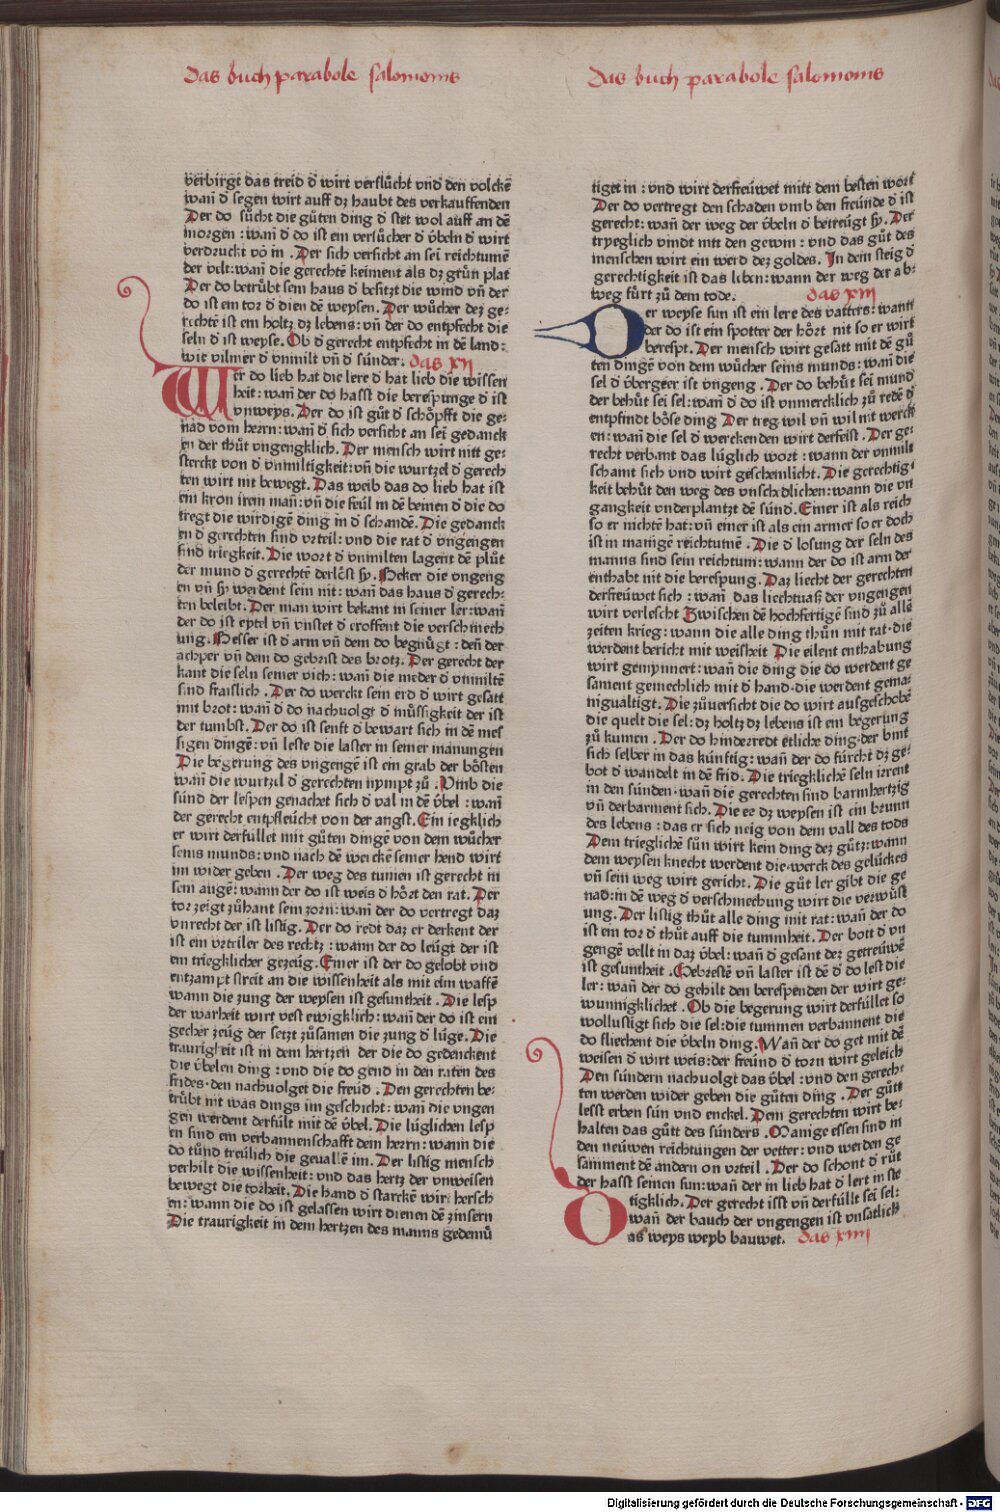 Das buch parabole salomonis
verbirgt das treid d̄ wirt verflůcht vnd den volckē
wañ d̄ segen wirt auff dz haubt des verkauffenden
Der do sůcht die gůten ding d̄ stet wol auff an dē
morgen : wañ d̄ do ist ein versůcher d̄ v̈beln d̄ wirt
verdruckt vō in . Der sich versicht an sei reichtumē
der velt: wañ die gerechtē keiment als dz grůn plat
Der do betrůbt sein haus d̄ besitzt die wind vñ der
do ist ein tor d̄ dien dē weysen. Der wůcher dez ge-
rechtē ist ein holtz dz lebens: vñ der do entpfecht die
seln d̄ ist weyse. Ob d̄ gerecht entpfecht in dē land:
wie vilmer d̄ vnmilt vñ d̄ sůnder. das XII
Wer do lieb hat die lere d̄ hat lieb die wissen
heit: wañ der do hasst die berespunge d̄ ist
vnweys. Der do ist gůt d̄ schöpfft die ge-
nad vom herrn: wañ d̄ sich versicht an sei gedanck
en der thůt vngengklich. Der mensch wirt nitt ge-
sterckt von d̄ vnmiltigkeit: vñ die wurtzel d̄ gerech
ten wirt nit bewegt. Das weib das do lieb hat ist
ein kron irem mañ: vñ die feül in dē beinen d̄ die do
tregt die wirdigē ding in d̄ schandē. Die gedanck
en d̄ gerechten sind vrteil: vnd die rat d̄ vngengen
sind triegkeit. Die wort d̄ vnmilten lagent dē plůt
der mund d̄ gerechtē derlöst sy. Keker die vngeng
en vñ sy werdent sein nit: wañ das haus d̄ gerech-
ten beleibt. Der man wirt bekant in seiner ler: wañ
der do ist eytel vñ vnstet d̄ eroffent die verschmech
ung. Besser ist d̄ arm vñ dem do begnůgt : deñ der
achper vñ dem do gebrist des brotz. Der gerecht der
kant die seln seiner vich: wañ die ineder d̄ vnmiltē
sind fraislich . Der do werckt sein erd d̄ wirt gesatt
mit brot: wañ d̄ do nachuolgt d̄ můssigkeit der ist
der tumbst. Der do ist senft d̄ bewart sich in dē mes
sigen dingē: vñ leste die laster in seiner manungen
Die begerung des vngengē ist ein grab der bösten
wañ die wurtzel d̄ gerechten nympt zů . Vmb die
sünd der lespen genachet sich d̄ val in dē v̈bel : wañ
der gerecht entpfleücht von der angst. Ein ieglich
er wirt derfüllet mit gůten dingē von dem wůcher
seins munds: vnd nach dē werckē seiner hend wirt
im wider geben . Der weg des tunien ist gerecht in
sein augē: wann der do ist weis d̄ hört den rat. Der
tor zeigt zůhant sein zorn: wañ der do vertregt daz
vnrecht der ist listig. Der do redt daz er derkent der
ist ein vrteiler des rechtz : wann der do leügt der ist
ein triegklicher gezeüg. Einer ist der do gelobt vnd
entzampt streit an die wissenheit als mit eim waffē
wann die zung der weysen ist gesuntheit . Die lesp
der warheit wirt vest ewigklich: wañ der do ist ein
gecher zeüg der setzt zůsamen die zung d̄ lüge. Die
traurigkeit ist in dem hertzen der die do gedenckent
die v̈belen ding : vnd die do gend in den raten des
frides · den nachuolget die freüd . Den gerechten be-
trůbt nit was dings im geschicht: wañ die vngen
gen werdent derfült mit dē v̈bel. Die lüglichen lesp
en sind ein verbannenschafft dem herrn: wann die
do tůnd treülich die geuallē im. Der listig mensch
verhilt die wissenheit: vnd das hertz der vnweisen
bewegt die torheit. Die hand d̄ starckē wirt hersch
en: wann die do ist gelassen wirt dienen dē zinsern
Die traurigkeit in dem hertzen des manns gedemů
Das buch parabole salomonis
tiget in : vnd wirt derfreüwet mitt dem besten wort
Der do vertregt den schaden vmb den freünde d̄ ist
gerecht: wañ der weg der v̈beln d̄ betreügt sy. Der
tryeglich vindt nit den gewin : vnd das gůt des
menschen wirt ein werd dez goldes. In dem steig d̄
gerechtigkeit ist das leben: wann der weg der ab-
weg fürt zů dem tode. das XIII
Der weyse sun ist ein lere des vatters: wann
der do ist ein spotter der hört nit so er wirt
berespt. Der mensch wirt gesatt mit dē gů
ten dingē von dem wůcher seins munds: wañ die
sel d̄ v̈bergeer ist vngeng . Der do behůt sei mund
der behůt sei sel: wañ d̄ do ist vnmercklich zů redē d̄
entpfindt böse ding Der treg wil vñ wil nit werck
en: wañ die sel d̄ werckenden wirt derfeist . Der ge-
recht verbant das lüglich wort : wann der vnmilt
schamt sich vnd wirt geschemlicht. Die gerechtig-
keit behůt den weg des vnschedlichen: wann die vn
gangkeit vnderplantzt dē sünd. Einer ist als reich
so er nichtē hat: vñ einer ist als ein armer so er doch
ist in manigē reichtumē . Die d̄ losung der seln des
manns sind sein reichtum: wann der do ist arm der
enthabt nit die berespung. Daz liecht der gerechten
derfreüwet sich : wañ das liechtuaß der vngengen
wirt verlescht Zwischen dē hochfertigē sind zů allē
zeiten krieg: wann die alle ding thůn mit rat · die
werdent bericht mit weisheit Die eilent enthabung
wirt gemynnert: wañ die ding die do werdent ge
sament gemechlich mit d̄ hand · die werdent gema-
nigualtigt. Die zůuersicht die do wirt aufgeschobē
die quelt die sel: dz holtz dz lebens ist ein begerung
zů kumen . Der do hinderredt etliche ding · der bint
sich selber in das künftig: wañ der do fürcht dz ge-
bot d̄ wandelt in dē frid. Die trieglichē seln irrent
in den sünden · wañ die gerechten sind barmhertzig
vñ derbarment sich. Die ee dz weysen ist ein brunn
des lebens : das er sich neig von dem vall des tods
Dem trieglichē sůn wirt kein ding dez gůtz: wann
dem weysen knecht werdent die · werck des gelückes
vñ sein weg wirt gericht. Die gůt ler gibt die ge
nad: in dē weg d̄ verschmechung wirt die verwůst
ung. Der listig thůt alle ding mit rat: wañ der do
ist ein tor d̄ thůt auff die tummheit. Der bott d̄ vn
gengē vellt in daz v̈bel: wañ d̄ gesant dez getreüwē
ist gesuntheit . Gebrestē vñ laster ist dē d̄ do lest die
ler: wañ der do gehilt den berespenden der wirt ge-
wunnigklichet . Ob die begerung wirt derfüllet so
wollustigt sich die sel: die tummen verbannent die
do fliechent die v̈beln ding. Wañ der do get mit dē
weisen d̄ wirt weis: der freünd d̄ torn wirt geleich
Den sündern nachuolgt das v̈bel : vnd den gerech-
ten werden wider geben die gůten ding . Der gůtt
lesst erben sün vnd enckel. Dem gerechten wirt be-
halten das gůtt des sünders . Manige essen sind in
den neüwen reichtungen der vetter: vnd werden ge
samment dē andern on vrteil . Der do schont d̄ růt
der hasst seinen sun: wañ der in lieb hat d̄ lert in ste
tigklich. Der gerecht isst vñ derfüllt sei sel:
wañ der bauch der vngengen ist vnsatlich
Das weys weyb bauwet. das XIIII
Digitalisierung gefördert durch die Deutsche Forschungsgemeinschaft - DFG